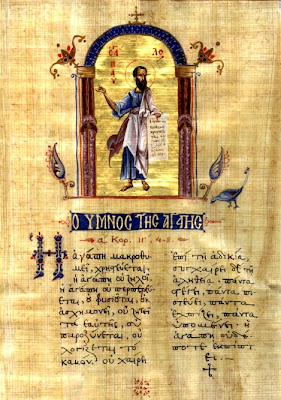 ΠΑΥ ΛΟΣ
Ο ΥΜΝΟΣ ΤΗΣ ΑΓΑΠΗΣ
α Κορ. ΙΓ', 4-8
Ἡ ἀγάπη μακροθυ
μεῖ, χρηστεύεται,
ἡ ἀγάπη οὐ ζηλοῖ
ἡ ἀγάπη οὐ περπερεύ
εται, οὐ φυσιοῦται, οὐκ
ἀσχημονεῖ, οὐ ζητεῖ
τὰ ἑαυτῆς, οὐ
παροξύνεται, οὐ
λογίζεται τὸ
κακόν· οὐ χαίρει
ἐπὶ τῇ ἀδικίᾳ,
συγχαίρει δὲ τῇ
ἀληθείᾳ· πάντα
στέγει, πάντα πι
στεύει, πάντα
ἐλπίζει, πάντα
ὑπομένει· ἡ
ἀγάπη οὐδέ
ποτε ἐκπίπτ
ει.